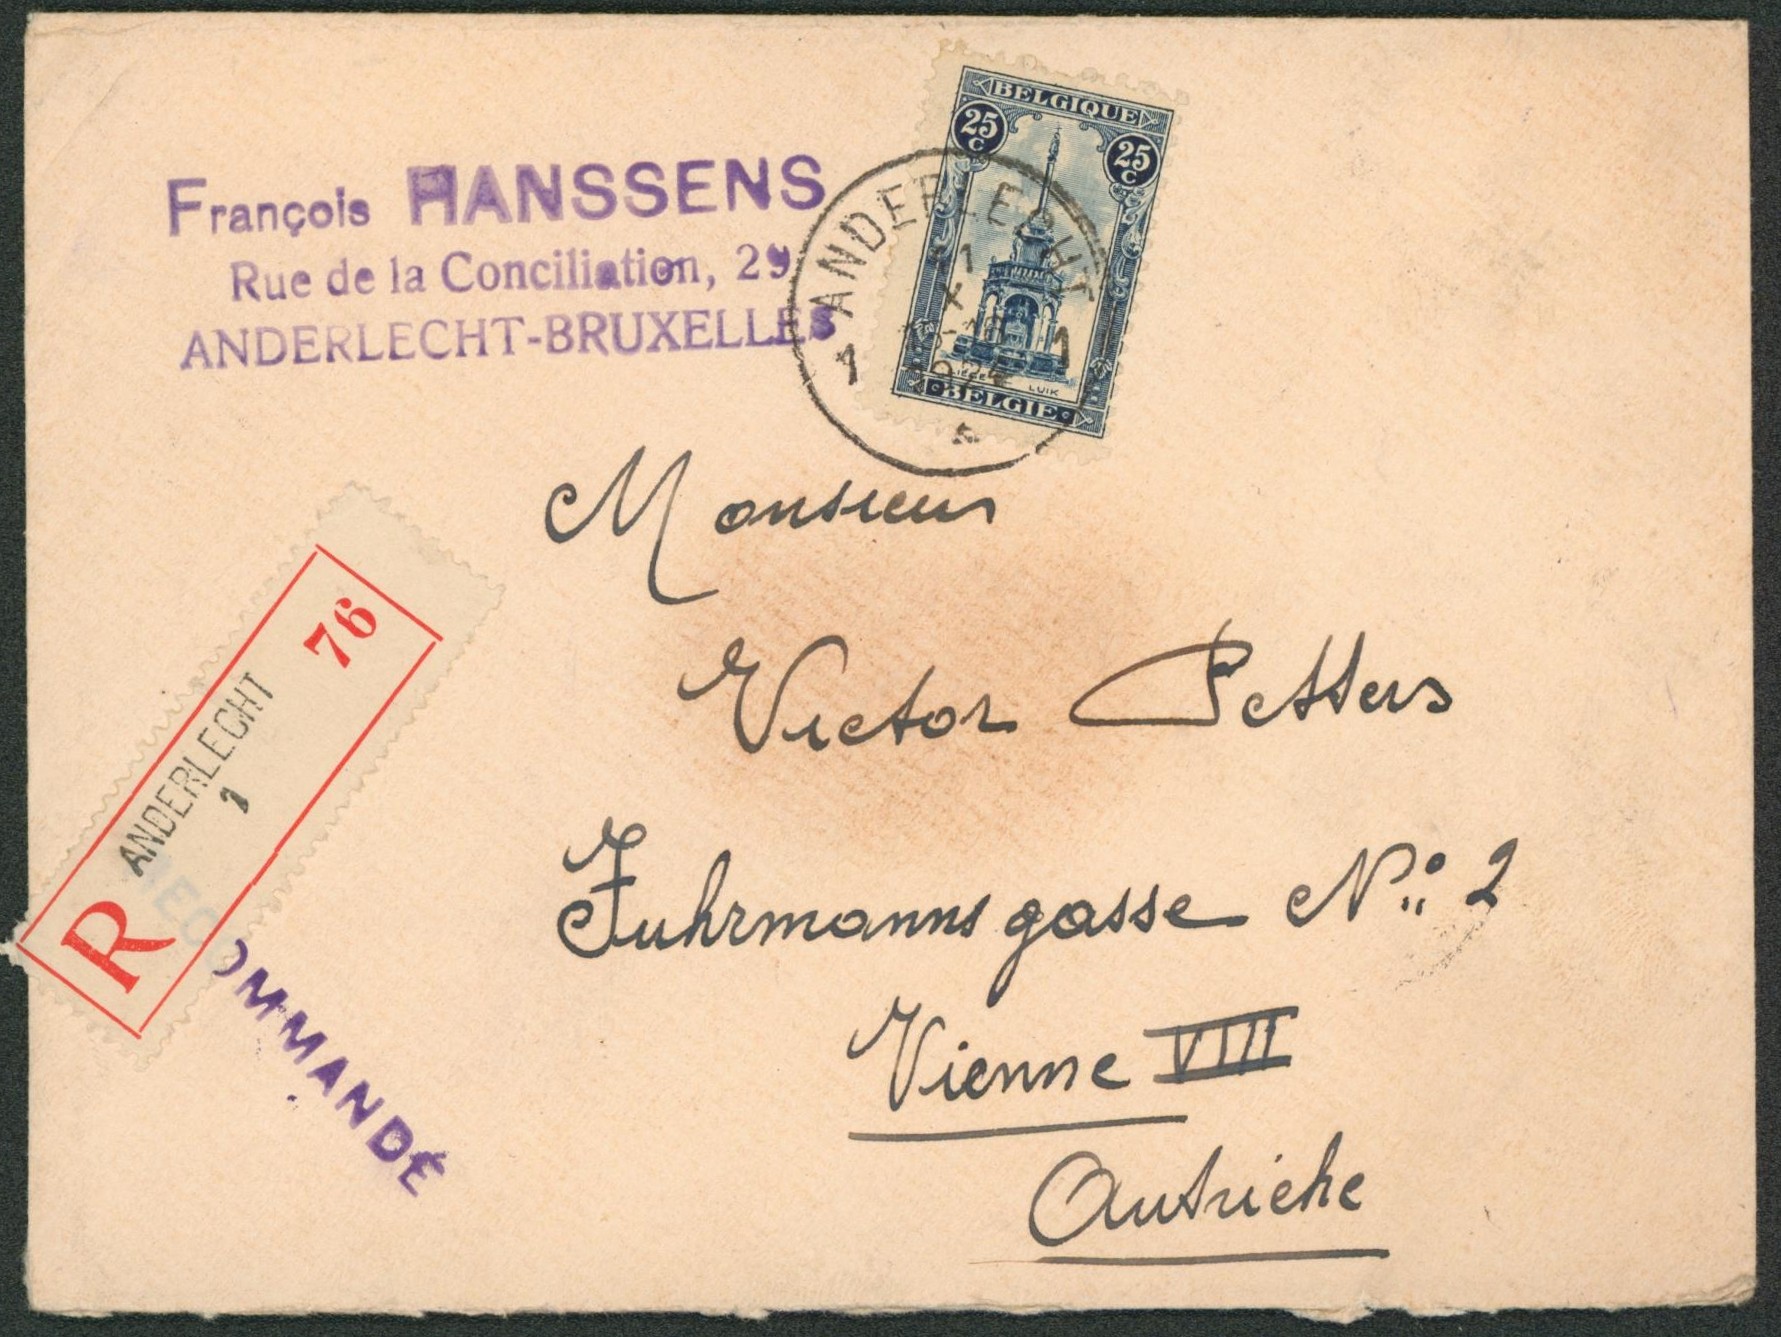 BELGIQUE
25 C
25 C
LIEGE LUIK
BELGIE
François HANSSENS
Rue de la Conciliation, 29
ANDERLECHT-BRUXELLES
ANDERLECHT
X
1 1
Monsieur
Victor Petters
Fuhrmannsgasse No: 2
Vienne VIII
Autriche
R
ANDERLECHT
1
76
RECOMMANDÉ